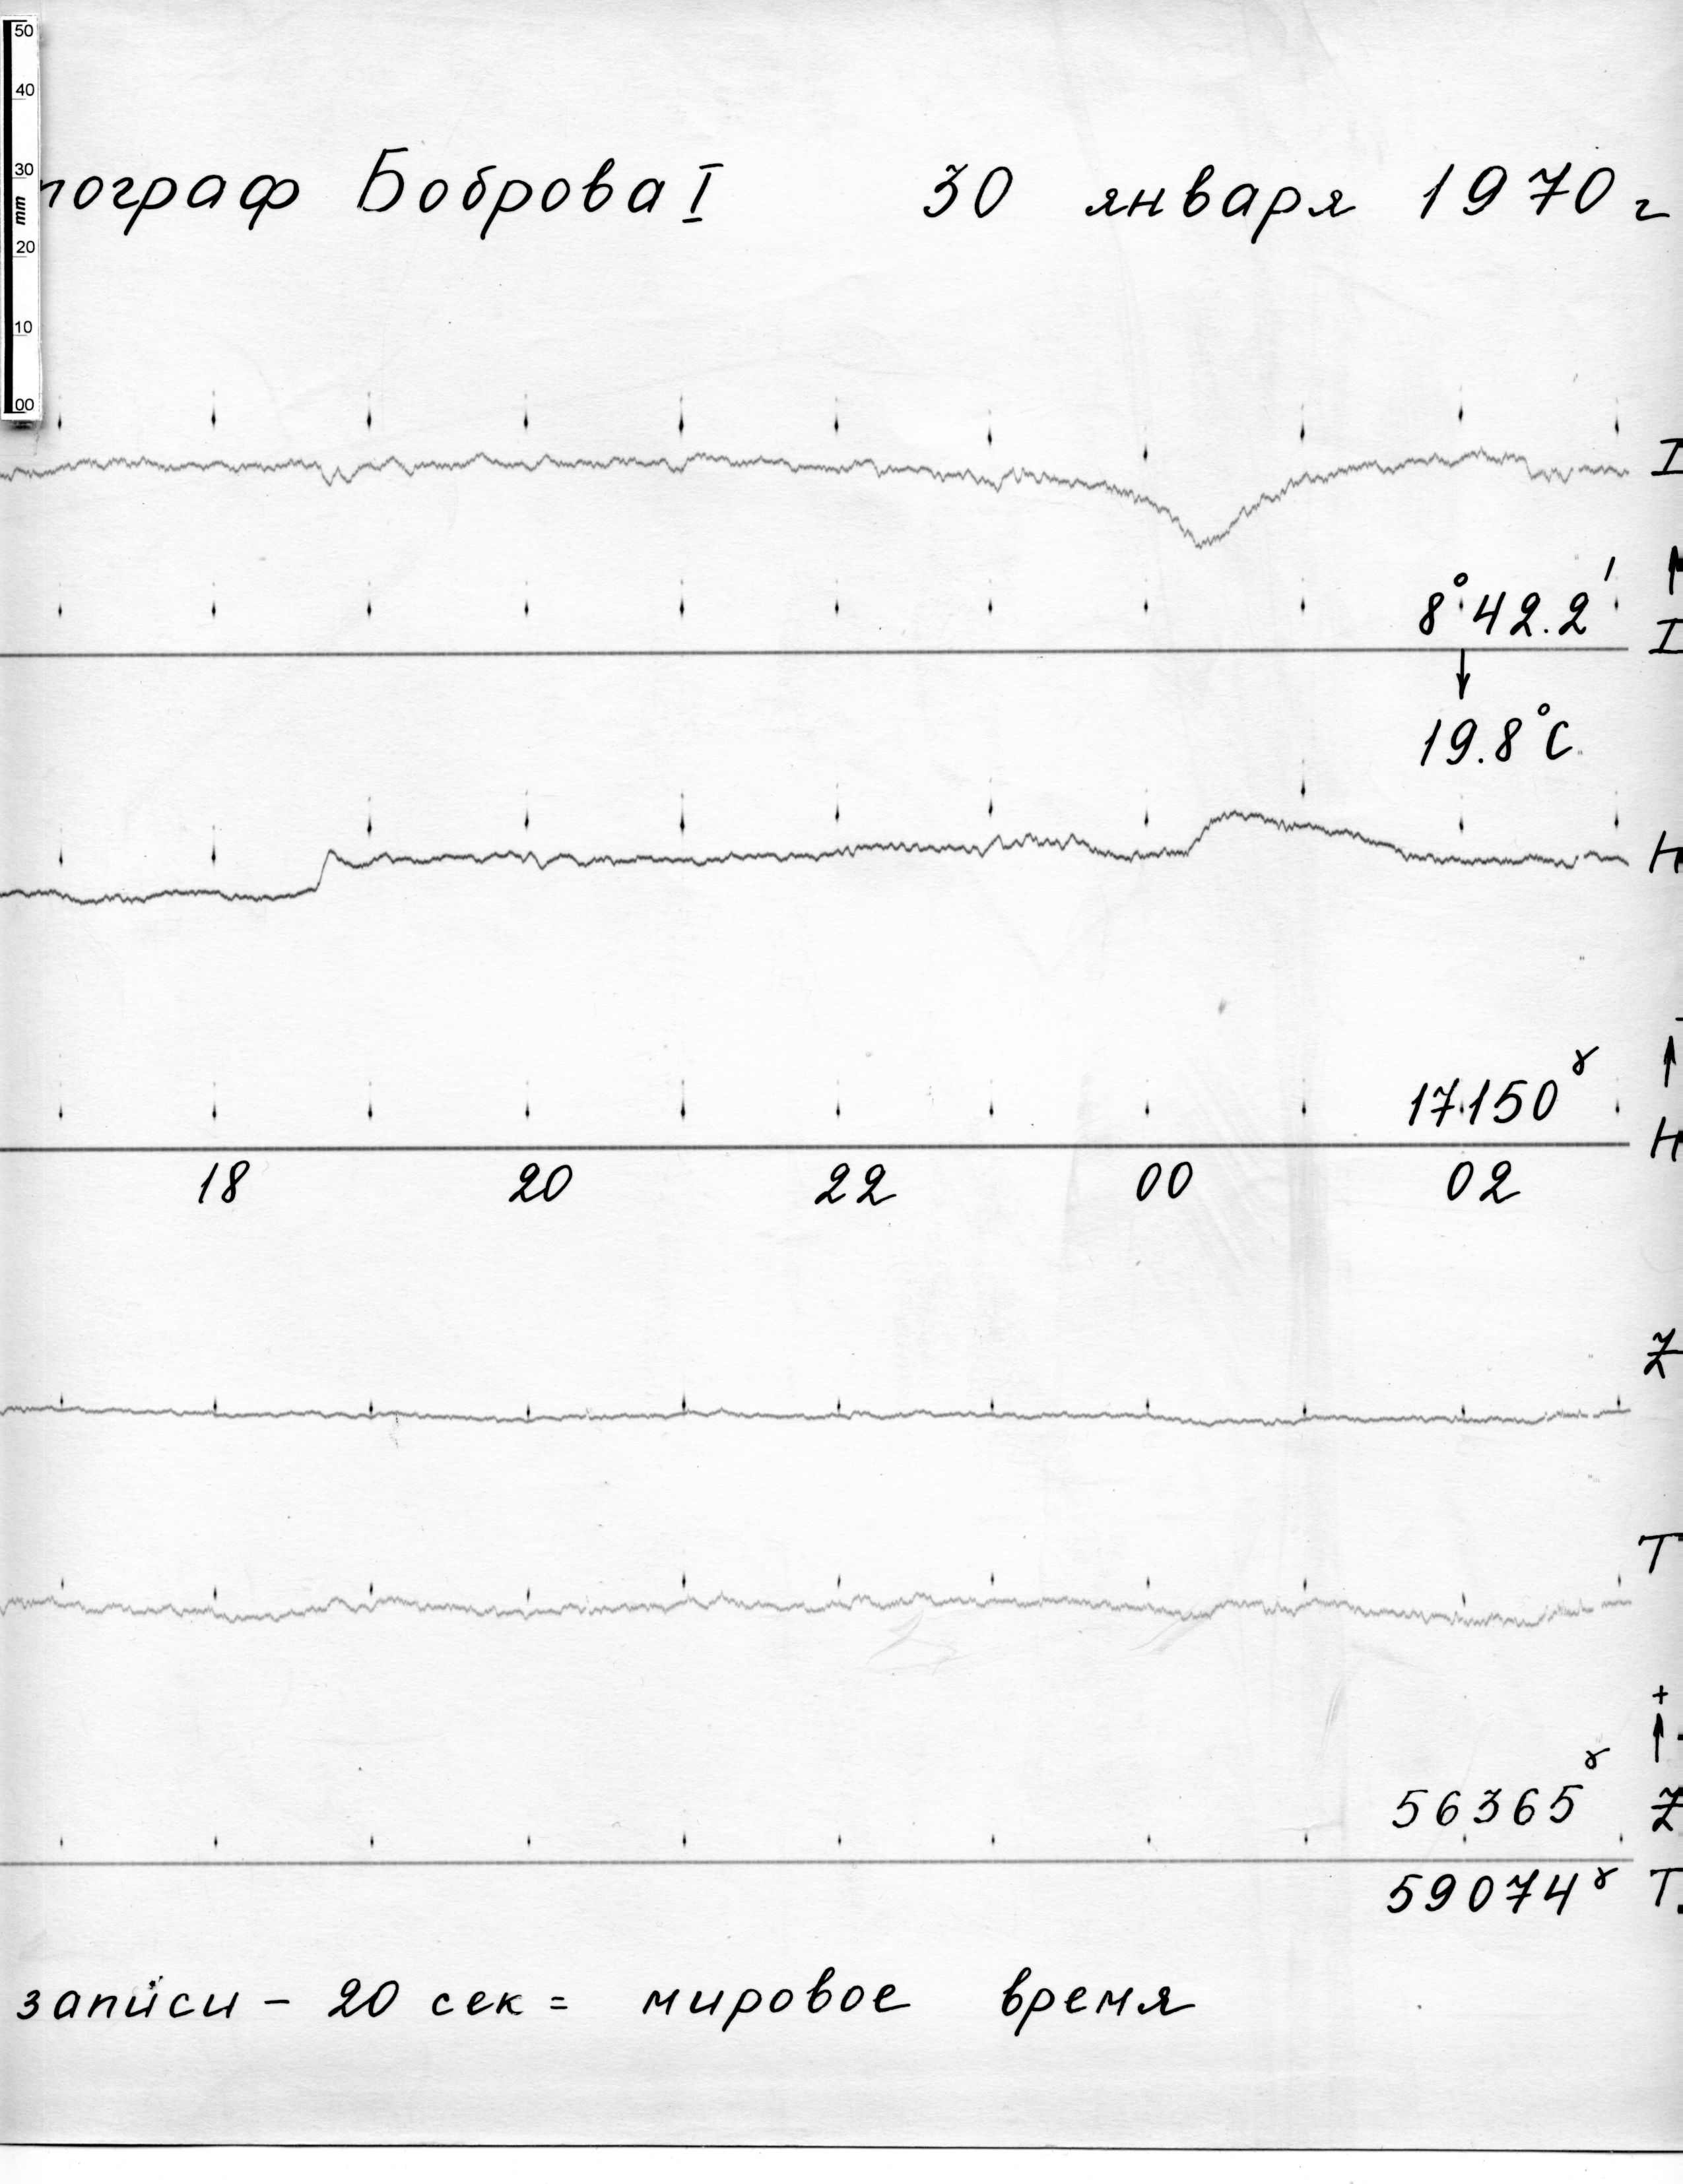 50
40
30
mm
20
10
00
пограф Боброва I 30 января 1970 г
8°42.2'
I
19.8°C
H
17150 γ
H
18 20 22 00 02
Z
T
+
56365 γ Z
59074 γ T
записи - 20 сек = мировое время